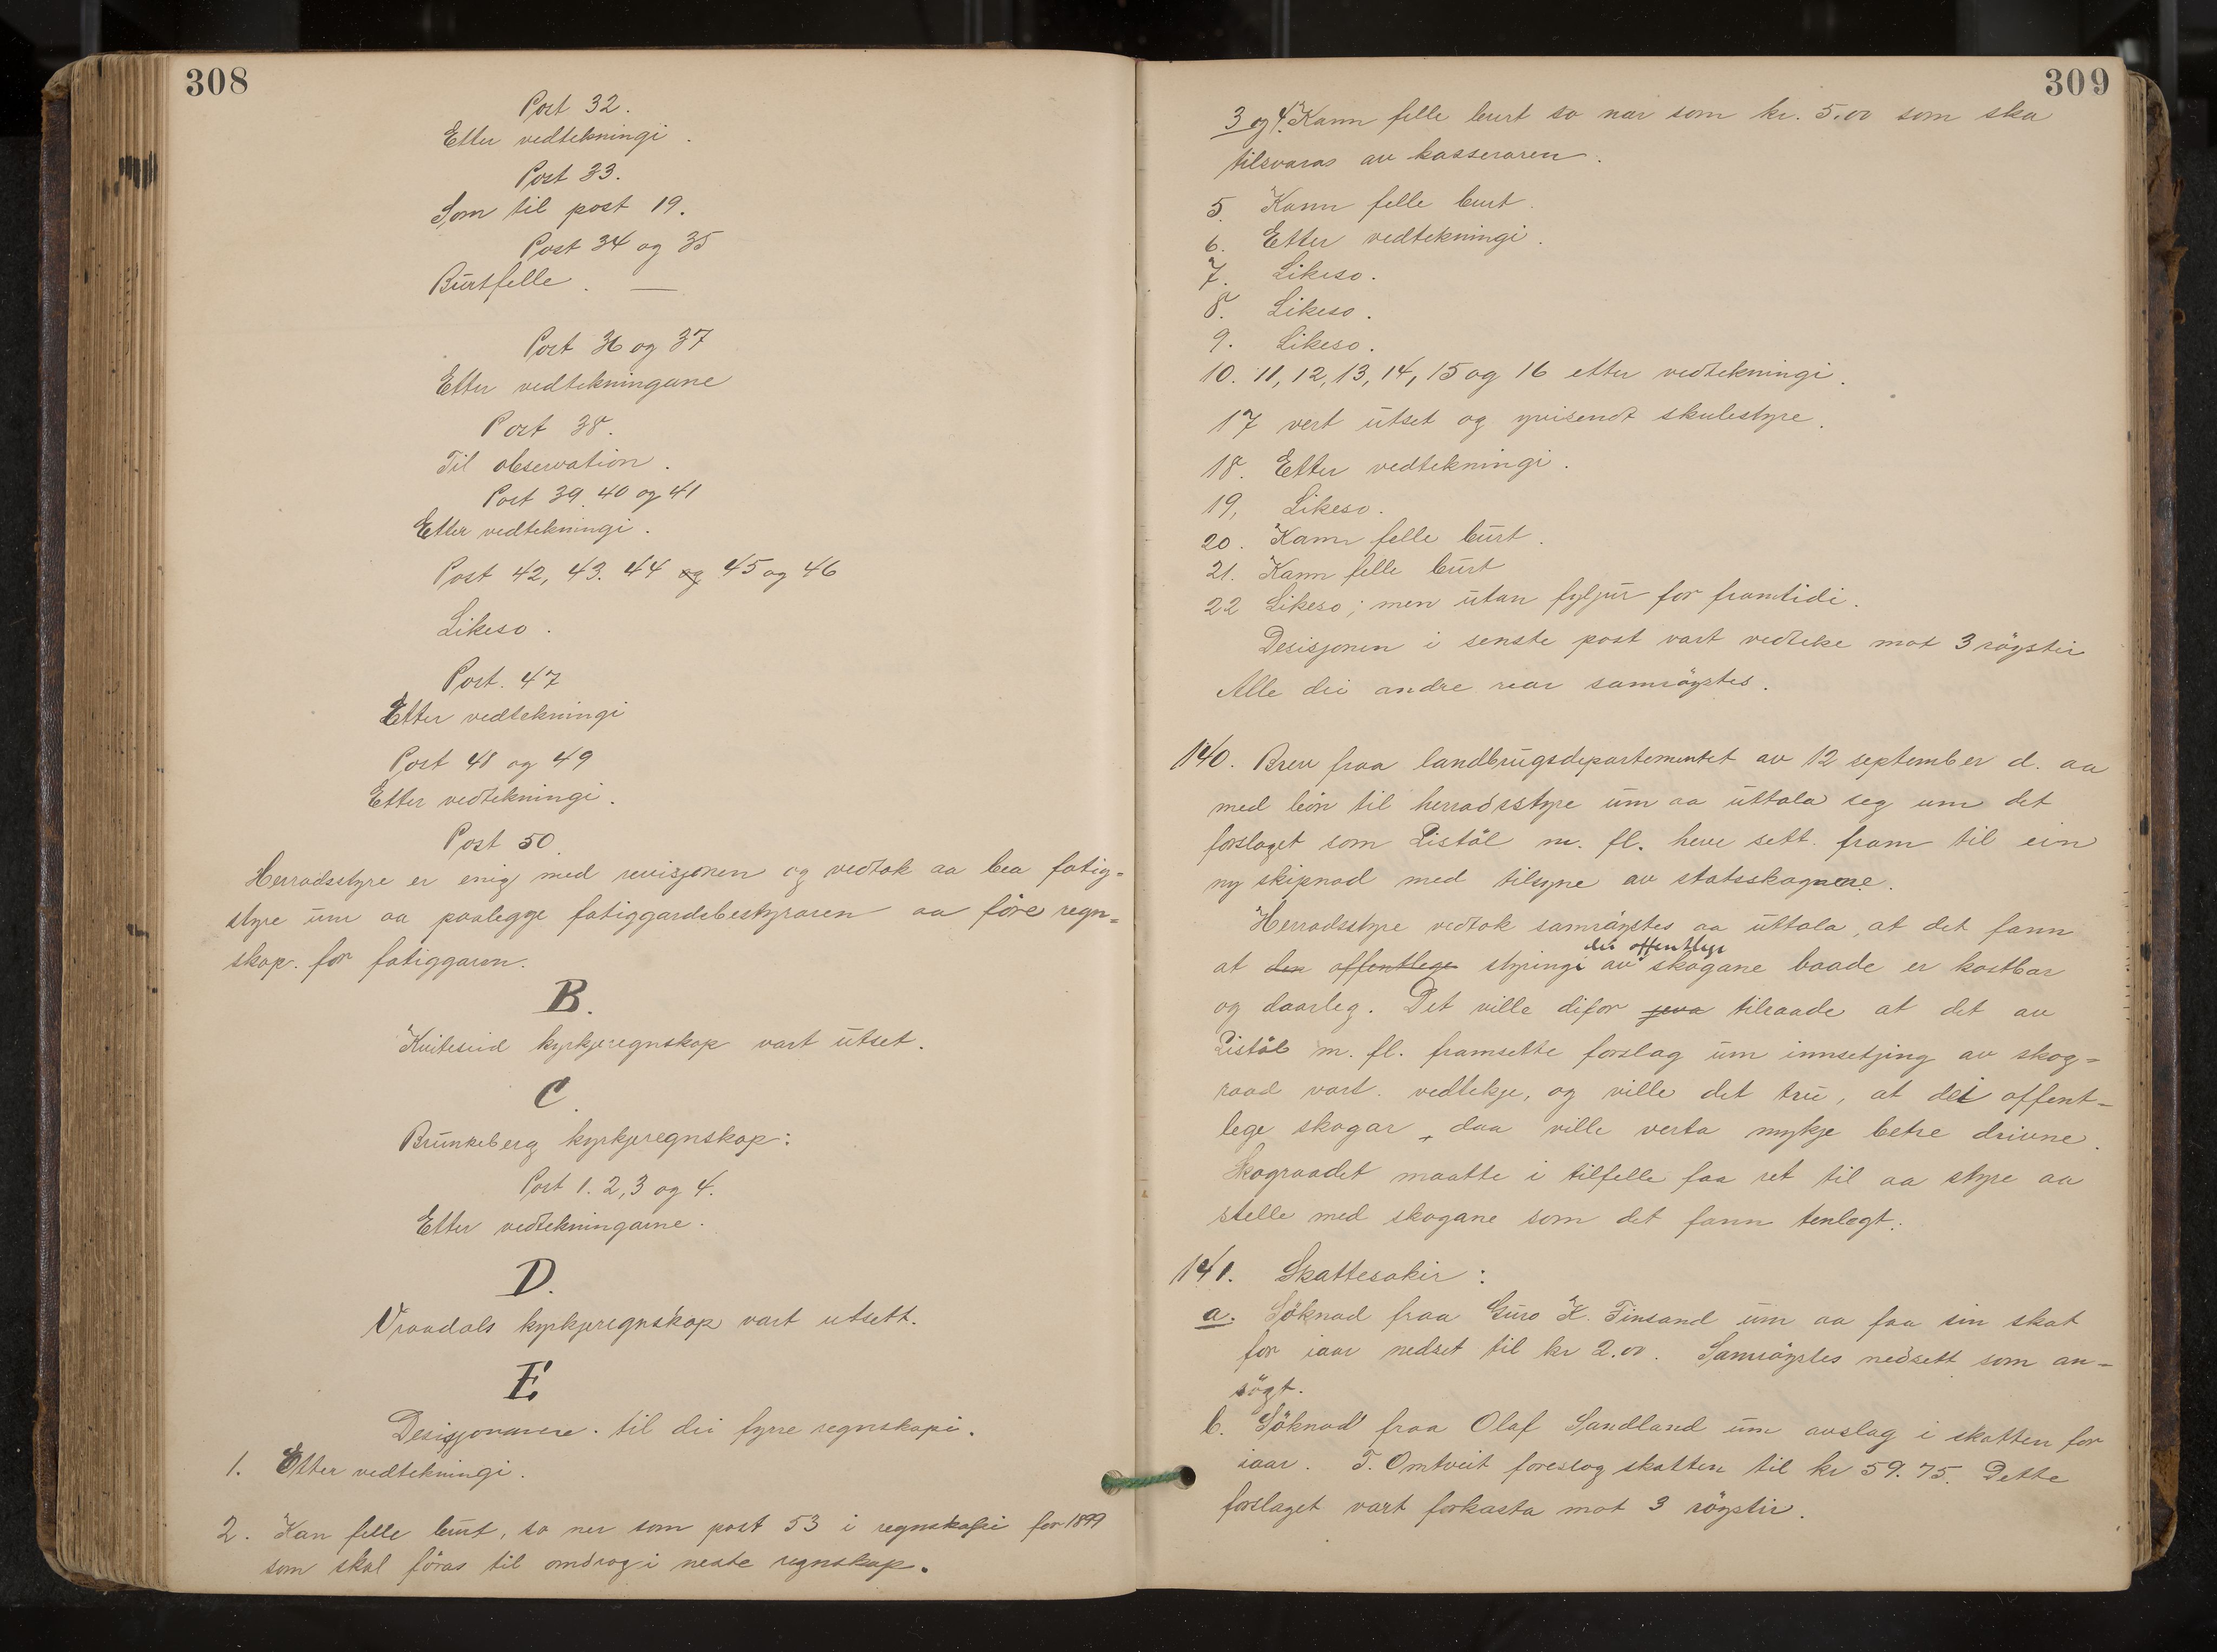 308
Post 32.
Etter vedtekningi.
Post 33.
Som til post 19.
Post 34 og 35
Burtfelle. —
Post 36 og 37
Etter vedtekningane
Post 38.
Til observation.
Post 39. 40 og 41
Etter vedtekningi.
Post 42, 43. 44 og 45 og 46
Likeso.
Post. 47
Etter vedtekningi
Post 48 og 49
Etter vedtekningi.
Post 50.
Herradsstyre er enig med revisjonen og vedtok aa bea fatig-
styre um aa paalegge fatiggardsbestyraren aa före regn-
skap. for fatiggaren.
B.
Kviteseid kyrkjeregnskap vart utset.
C.
Brunkeberg kyrkjeregnskap:
Post 1. 2, 3 og 4.
Etter vedtekningarne.
D.
Vraadals kyrkjeregnskap vart utsett.
E.
Desisjonanne. til dei fyrre regnskapi.
1. Etter vedtekningi.
2. Kan felle burt, so ner som post 53 i regnskapi for 1899
som skal föras til omdrag i neste regnskap.
309
3 og 4. Kann felle burt so nær som kr. 5.00 som ska
tilsvaras av kasseraren.
5. Kann felle burt.
6. Etter vedtekningi.
7. Likeso.
8. Likeso.
9. Likeso.
10. 11, 12, 13, 14, 15 og 16 etter vedtekningi.
17 vert utset og yvisendt skulestyre.
18. Etter vedtekningi.
19, Likeso.
20. Kann felle burt.
21. Kann felle burt
22 Likeso; men utan fylgjur for framtidi.
Desisjonen i senste post vart vedteke mot 3 röystir
Alle dei andre var samröystes.
140. Brev fraa landbrugsdepartementet av 12 september d. aa
med bön til herradsstyre um aa uttala seg um det
forslaget som Listöl m. fl. heve sett fram til ein
ny skipnad med tilsyne av statsskogane.
Herradsstyre vedtok samröystes aa uttala, at det fann
dei offentlege
at den offentlege styringi av skogane baade er kostbar
og daarleg. Det ville difor jeva tilraade at det av
Listöl m. fl. framsette forslag um innsetjing av skog-
raad vart vedtekje, og ville det tru, at dei offent-
lege skogar daa ville verta mykje betre drivne.
Skograadet maatte i tilfelle faa ret til aa styre aa
stelle med skogane som det fann tenlegt.
141. Skattesakir:
a. Söknad fraa Guro K. Tinsand um aa faa sin skat
for iaar nedset til kr 2.00. Samröystes nedsett som an-
sögt.
b. Söknad fraa Olaf Sandland um avslag i skatten for
iaar. T. Omtveit foreslog skatten til kr 59.75. Dette
forslaget vart forkasta mot 3 röystir.